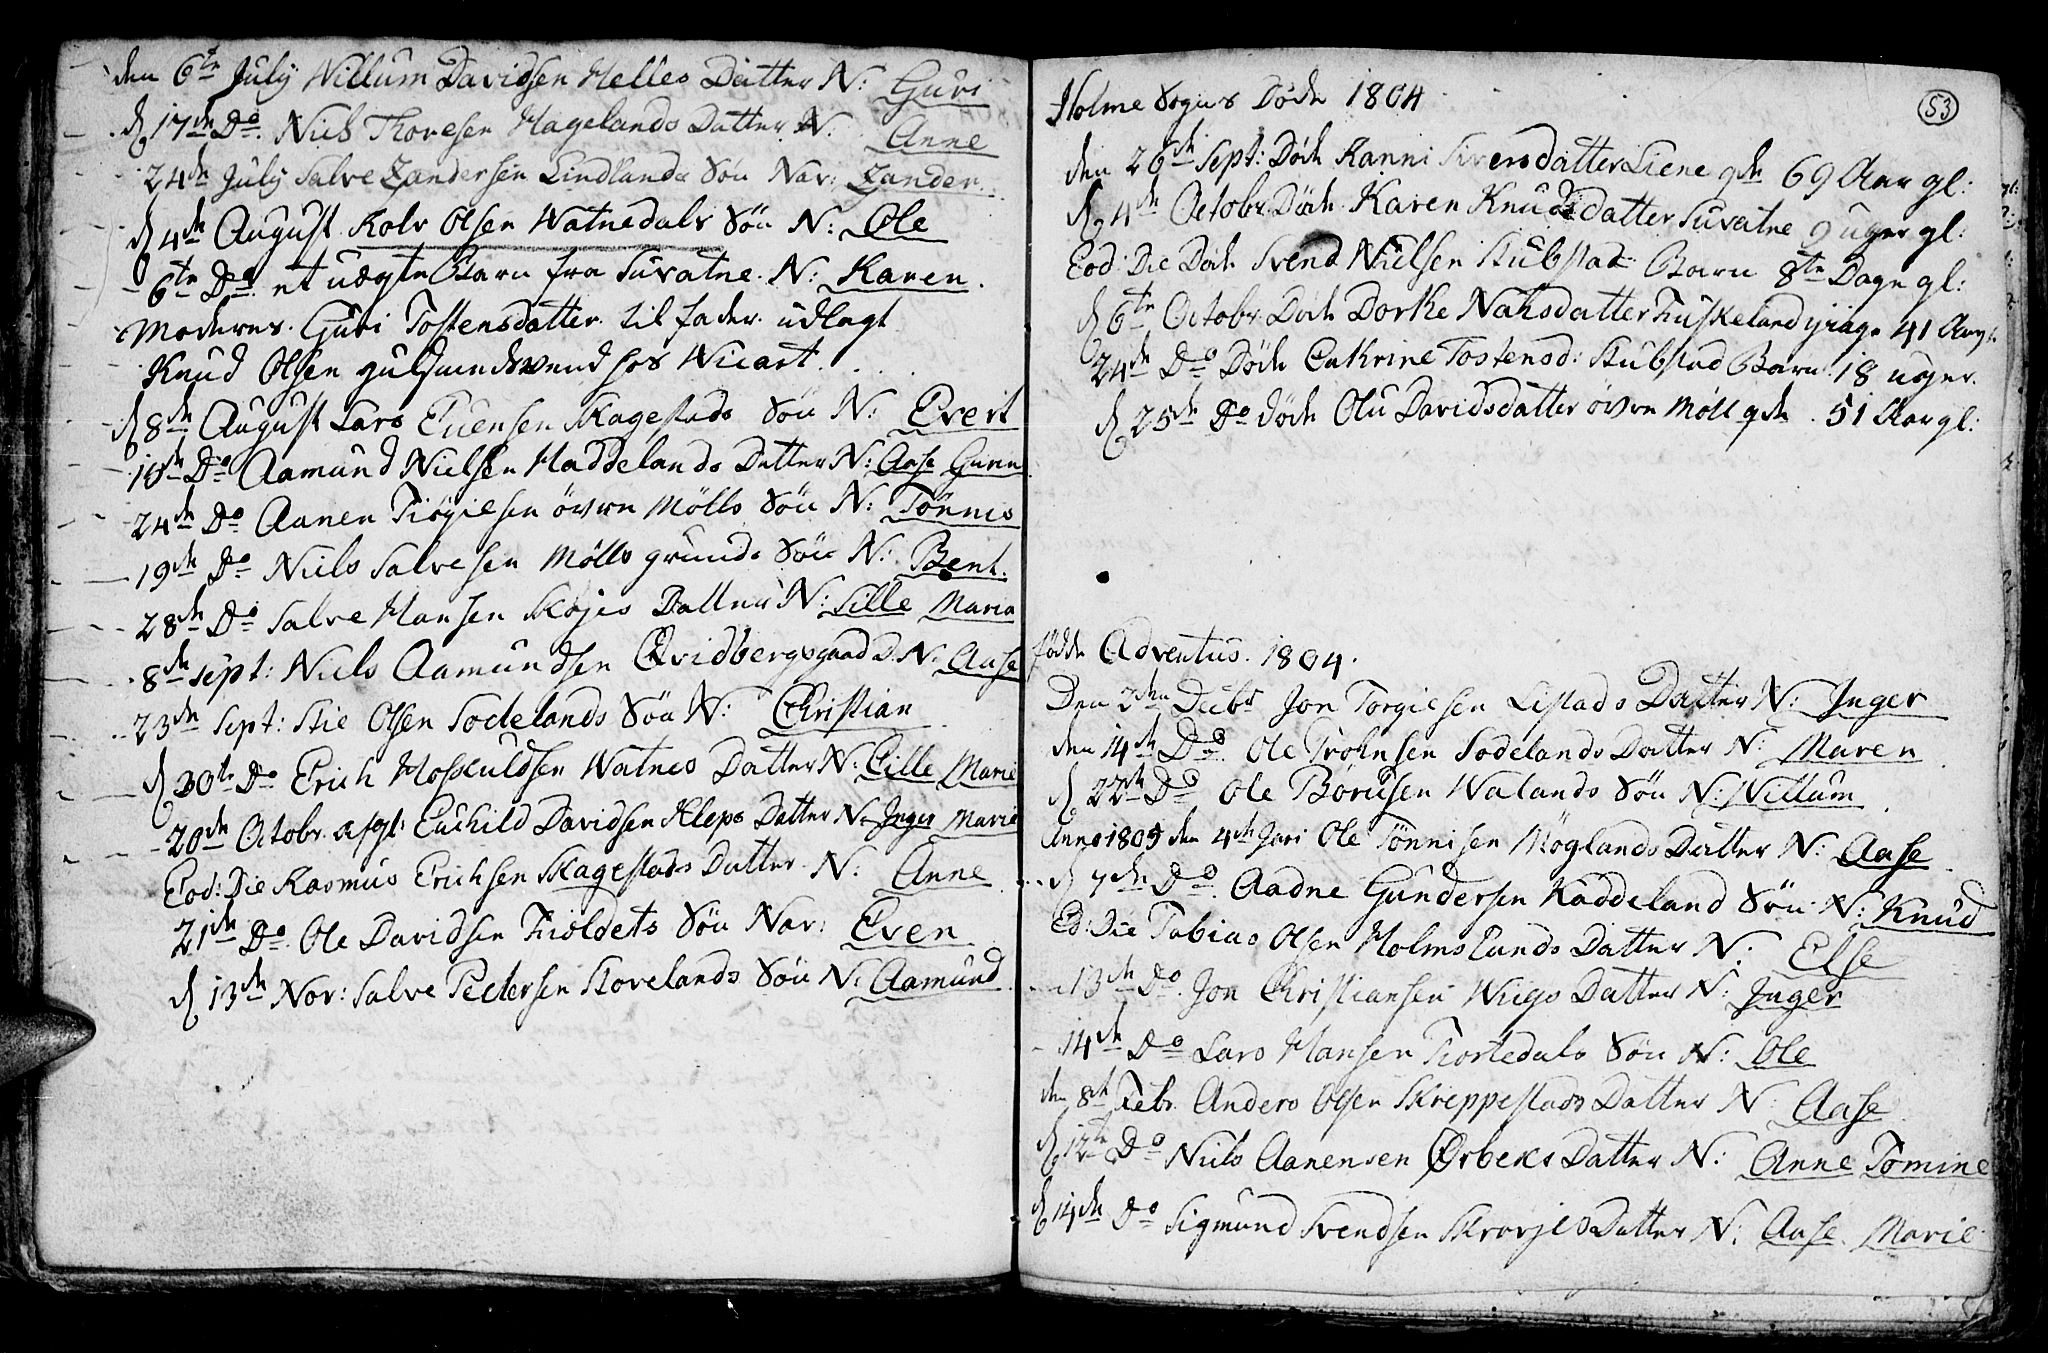 den 6te July Willum Davidsen Helles Datter N: Guri
d 17de Do. Niels Thoresen Hagelands Datter N. Anne
24de July Salve Zandersen Lindlands Søn Nav: Zander.
d 4de August Kolv Olsen Watnedals Søn N: Ole
6te Do. et uægte Barn fra Suvatne. N: Karen.
Moderens. Guri Tostensdatter. til fader udlagt
Knud Olsen guldsmedsvend hos Wicart.
d 8de August Lars Evensen Skagestads Søn N: Evert
10de Do Aamund Nielsen Haddelands Datter N: Aase Gunn
24de Do Aanen Tiøgjelsen övre Mölls Søn N: Tönnes
19de Do Niels Salvesen Mölls grunds Søn N: Bent.
28de Do Salve Hansen Skojes Datter N: Sille Maria
8de sept: Niels Aamundsen Qvidbergsgaad D. N: Aase
23de Sept: Stie Olsen Sodelands Søn N: Christian
d 30te Do Erich Hoskuldsen Watnes Datter N: Cille Marie
20de Octobr. afgl: Euchild Davidsen Kleps Datter N. Inger Marie
Eod: Die Rasmus Erichsen Skagestads Datter N: Anne
21de Do. Ole Davidsen Tioldets Søn Nav: Even
d 13de Nov: Salve Pedersen Stovelands Søn N: Aamund
53
Holme Sogns Døde 1804
den 26de Sept: Døde Ranni Siversdatter Liene gde 69 Aar gl:
d 4de Octobr Døde Karen Knudsdatter Suvatne 9 uger gl:
Eod: Die Døde Svend Nielsen Stubstad Barn 8te Dage gl:
d 6te Octobr. Døde Dorthe Nahsdatter Tuskeland 41 Aar gl:
24de Do Døde Cathrine Tostensd: Stubstad Barn 18 uger.
d 25de Do døde Olu Davidsdatter övre Möll gde 51 Aar gl:
fødde Adventus. 1804.
Den 2den Decbr Jon Torgiesen Listads Datter N: Inger
den 14de Do. Ole Trohnsen Sodelands Datter N: Maren
d 22de Do Ole Börusen Walands Søn N: Willum
Anno 1805 den 4de Jari Ole Tönnisen Möglands Datter N: Aase
d 7de Do. Aadne Gundersen Haddeland Søn N: Knud
Ed: Die Tobias Olsen Holmslands Datter N: Else
13de Do. Jon Christiansen Wiigs Datter N: Inger
14de Do Lars Hansen Tiortedals Søn N: Ole
den 8de Febr. Anders Olsen Skreppestads Datter N: Aase
d 12te Do Niels Aanensen Ørbeks Datter N: Anne Tomine
d 14de Do Sigmund Svendsen Skrovjes Datter N: Aase Marie